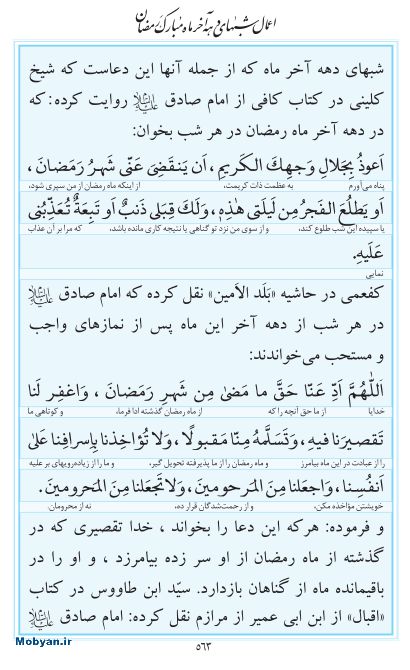 اعمال شبهای دهه آخر ماه مبارک رمضان
شبهای دهه آخر ماه که از جمله آنها این دعاست که شیخ
کلینی در کتاب کافی از امام صادق علیه‌السلام روایت کرده: که
در دهه آخر ماه رمضان در هر شب بخوان:
اَعوذُ بِجَلالِ وَجهِكَ الكَريمِ، اَن يَنقَضِىَ عَنّى شَهرُ رَمَضانَ،
پناه می‌آورم به عظمت ذات کریمت، از اینکه ماه رمضان از من سپری شود،
اَو يَطلُعَ الفَجرُ مِن لَيلَتى هٰذِهِ، وَلَكَ قِبَلى ذَنبٌ اَو تَبِعَةٌ تُعَذِّبُنى
یا سپیده این شب طلوع کند، و از سوی من نزد تو گناهی یا نتیجه کاری مانده باشد، که مرا بر آن عذاب
عَلَيهِ.
نمایی
کفعمی در حاشیه «بَلَد الاَمین» نقل کرده که امام صادق علیه‌السلام
در هر شب از دهه آخر این ماه پس از نمازهای واجب
و مستحب می‌خواندند:
اَللّٰهُمَّ اَدِّ عَنّا حَقَّ ما مَضىٰ مِن شَهرِ رَمَضانَ، وَاغفِر لَنا
خدایا از ما حق آنچه را که از ماه رمضان گذشته ادا فرما، و کوتاهی ما
تَقصيرَنا فيهِ، وَتَسَلَّمهُ مِنّا مَقبولًا، وَلا تُؤاخِذنا بِاِسرافِنا عَلىٰ
را از عبادت در این ماه بیامرز و ماه رمضان را از ما پذیرفته تحویل گیر، و ما را از زیاده‌رویهای بر علیه
اَنفُسِنا، وَاجعَلنا مِنَ المَرحومينَ، وَلا تَجعَلنا مِنَ المَحرومينَ.
خویشتن مؤاخذه مکن، و از رحمت‌شدگان قرار ده، نه از محرومان.
و فرموده: هرکه این دعا را بخواند، خدا تقصیری که در
گذشته از ماه رمضان از او سر زده بیامرزد، و او را در
باقیمانده ماه از گناهان بازدارد. سیّد ابن طاووس در کتاب
«اقبال» از ابن ابی عمیر از مرازم نقل کرده: امام صادق علیه‌السلام
Mobyan.ir
۵۶۳